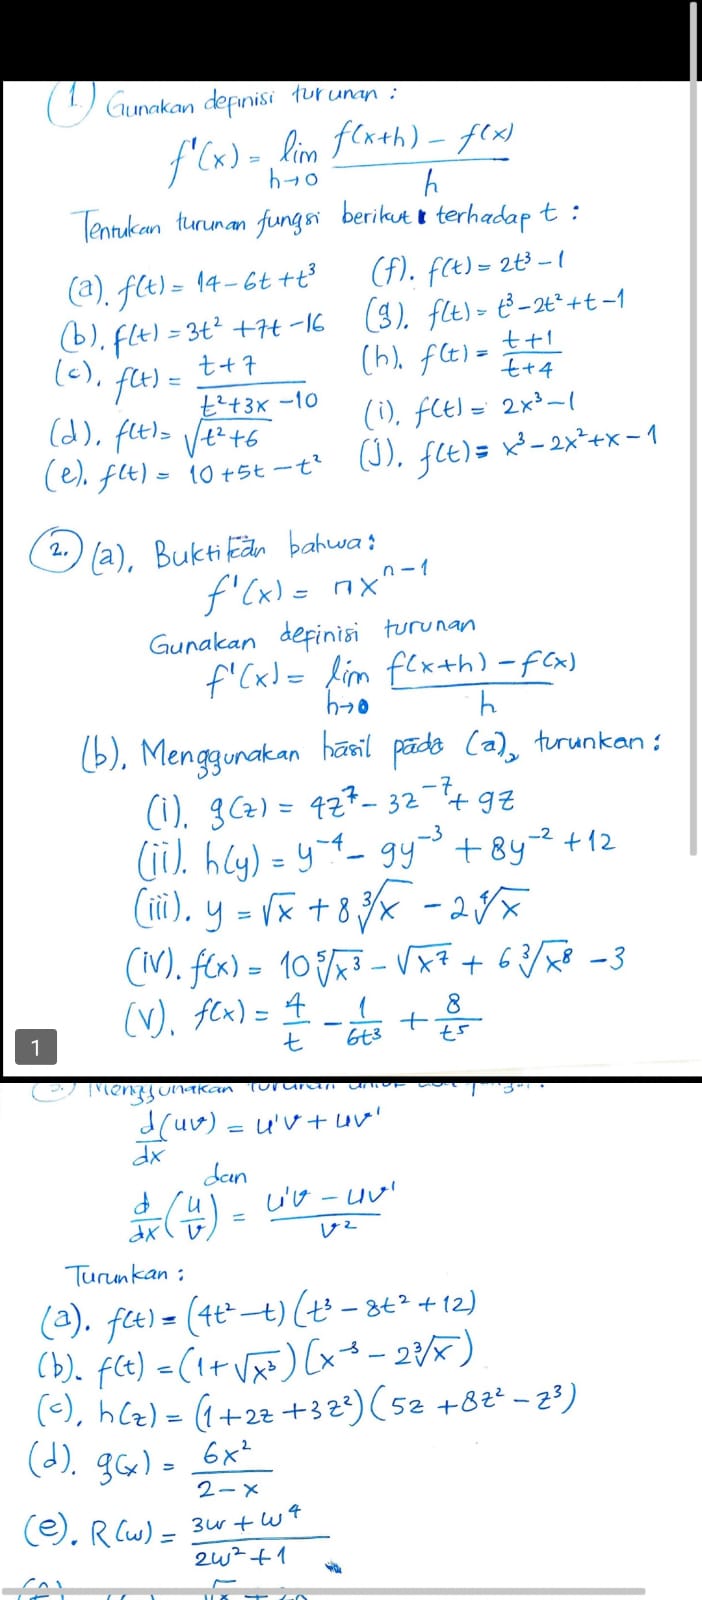 1. Gunakan definisi turunan :
f'(x) = lim h→0 (f(x+h) - f(x)) / h
Tentukan turunan fungsi berikut terhadap t :
(a). f(t) = 14 - 6t + t³
(b). f(t) = 3t² + 7t - 16
(c). f(t) = (t+7) / (t²+3x-10)
(d). f(t) = √(t²+6)
(e). f(t) = 10 + 5t - t²
(f). f(t) = 2t³ - 1
(g). f(t) = t³ - 2t² + t - 1
(h). f(t) = (t+1) / (t+4)
(i). f(t) = 2x³ - 1
(j). f(t) = x³ - 2x² + x - 1
2. (a). Buktikan bahwa :
f'(x) = nxⁿ⁻¹
Gunakan definisi turunan
f'(x) = lim h→0 (f(x+h) - f(x)) / h
(b). Menggunakan hasil pada (a), turunkan :
(i). g(z) = 4z⁷ - 3z⁻⁷ + 9z
(ii). h(y) = y⁻⁴ - 9y⁻³ + 8y⁻² + 12
(iii). y = √x + 8∛x - 2∜x
(iv). f(x) = 10 ⁵√x³ - √x⁷ + 6 ³√x⁸ - 3
(v). f(x) = 4/t - 1/6t³ + 8/t⁵
1
3.) Menggunakan turunan
d/dx (uv) = u'v + uv'
dan
d/dx (u/v) = (u'v - uv') / v²
Turunkan :
(a). f(t) = (4t² - t)(t³ - 8t² + 12)
(b). f(t) = (1 + √x³)(x⁻³ - 2∛x)
(c). h(z) = (1 + 2z + 3z²)(5z + 8z² - z³)
(d). g(x) = 6x² / (2 - x)
(e). R(w) = (3w + w⁴) / (2w² + 1)